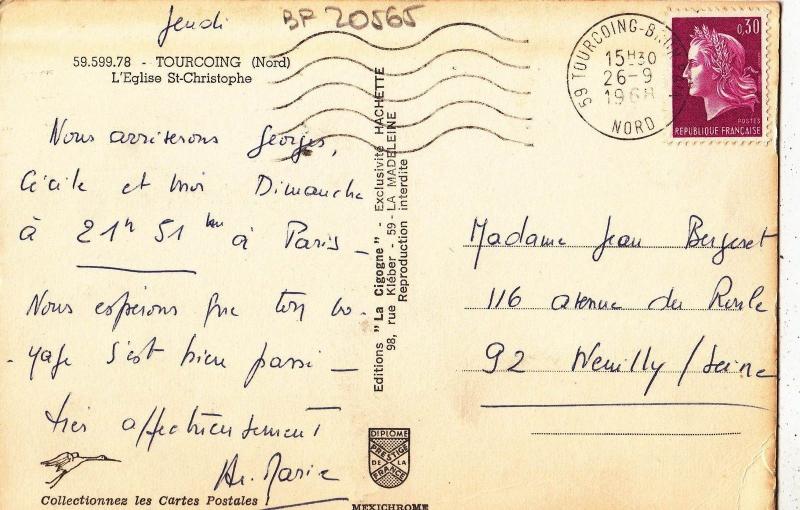 Jeudi
BP 20565
59.599.78 - TOURCOING (Nord)
L'Eglise St-Christophe
Nous arriverons Georges,
Cécile et moi Dimanche
à 21h 51 mn à Paris -
Nous espérons que ton vo-
-yage s'est bien passé -
très affectueusement
M. Marie
Collectionnez les Cartes Postales
Editions "La Cigogne" - Exclusivité HACHETTE
98, rue Kléber - 59 - LA MADELEINE
Reproduction interdite
DIPLOME
PRESTIGE
DE LA
FRANCE
MEXICHROME
59 TOURCOING
15H30
26-9
1968
NORD
0,30
POSTES
REPUBLIQUE FRANÇAISE
Madame Jean Bergeret
116 avenue du Roule
92 Neuilly/Seine